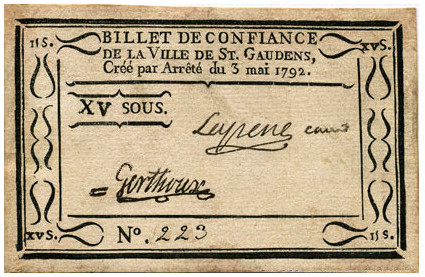 IIS.
XVS.
BILLET DE CONFIANCE
DE LA VILLE DE ST. GAUDENS,
Créé par Arrêté du 3 mai 1792.
XV SOUS.
Gerthoux
XVS.
No. 223
IIS.